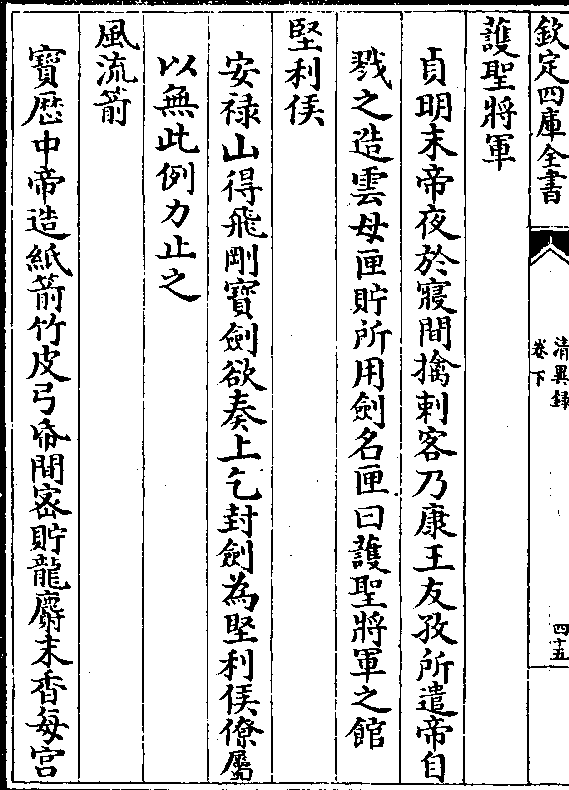 欽定四庫全書
清異録
卷下
四十五
護聖將軍
貞明末帝夜於寢間擒刺客乃康王友孜所遣帝自
戮之造雲母匣貯所用劍名匣曰護聖將軍之館
堅利侯
安禄山得飛剛寶劍欲奏上乞封劍為堅利侯僚屬
以無此例力止之
風流箭
寶厯中帝造紙箭竹皮弓紙間密貯龍麝末香每宮